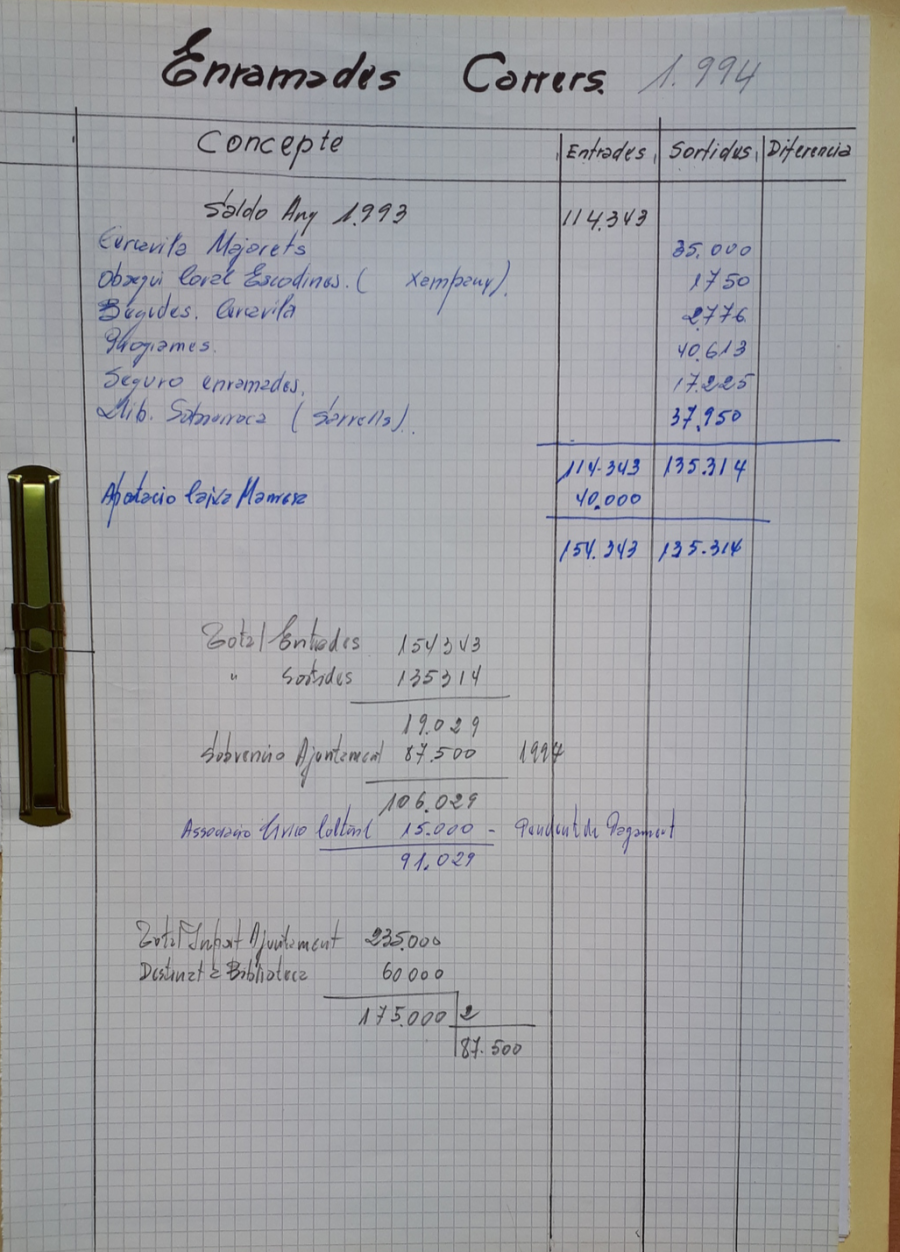 Enramades Carrers. 1.994
Concepte Entrades Sortidas Diferencia
Saldo Any 1.993 114.343
Cercavila Majorets 35.000
Obsequi Coral Escodines. ( Xempany). 1750
Begudes. Cercavila 2.776
Programes. 40.613
Seguro enramades. 17.225
Llib. Sobrerroca ( Serrells). 37.950
114.343 135.314
Aportacio Caixa Manresa 40.000
154.343 135.314
Total Entrades 154343
" Sortides 135314
19.029
Subvencio Ajuntament 87.500 1994
106.029
Associacio Civico Cultural 15.000 - Pendent de Pagament
91.029
Total Import Ajuntament 235.000
Destinat a Biblioteca 60000
175.000 2
87.500